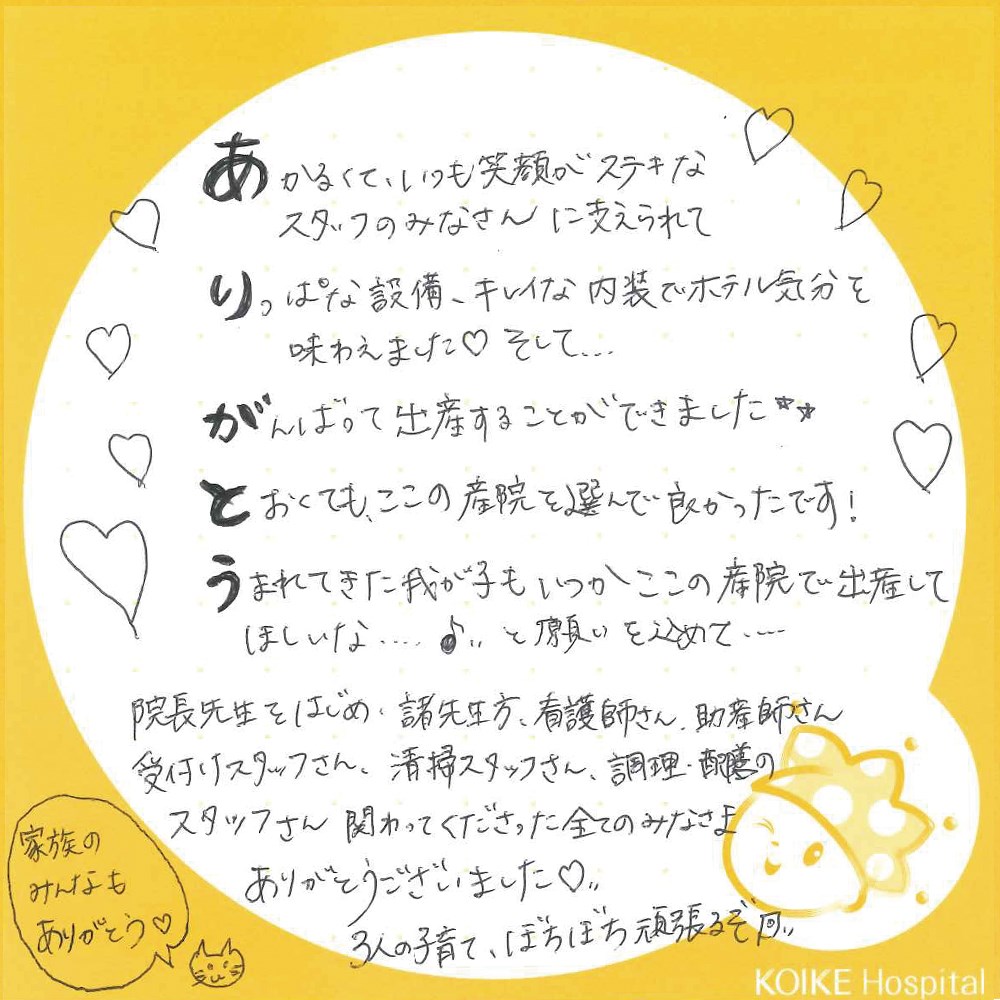 あかるくて、いつも笑顔がステキな
スタッフのみなさんに支えられて
りっぱな設備、キレイな内装でホテル気分を
味わえました♡ そして...
がんばって出産することができました**
とおくても、ここの産院を選んで良かったです!
うまれてきた我が子もいつかここの産院で出産して
ほしいな....♪ と願いを込めて....
院長先生をはじめ・諸先生方、看護師さん、助産師さん
受付けスタッフさん、清掃スタッフさん、調理・配膳の
スタッフさん 関わってくださった全てのみなさま
ありがとうございました♡
3人の子育て、ぼちぼち頑張るぞ
家族の
みんなも
ありがとう♡
KOIKE Hospital